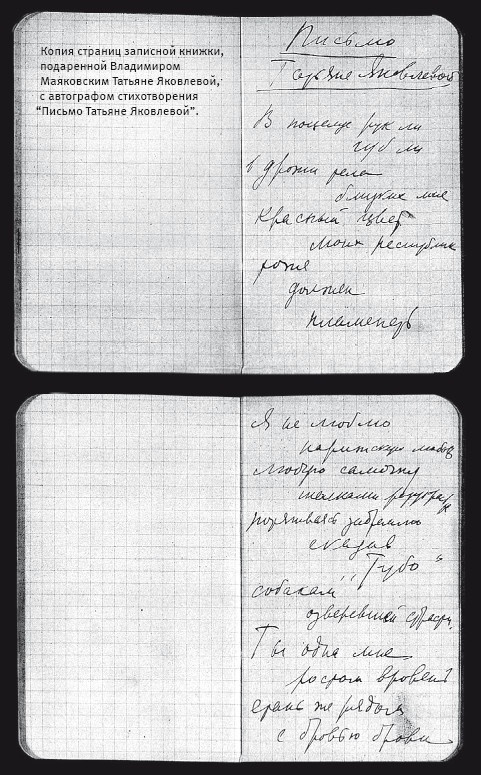 Копия страниц записной книжки,
подаренной Владимиром
Маяковским Татьяне Яковлевой,
с автографом стихотворения
“Письмо Татьяне Яковлевой”.
Письмо
Татьяне Яковлевой
В поцелуе рук ли
губ ли
в дрожи тела
близких мне
красный цвет
моих республик
тоже
должен
пламенеть
Я не люблю
парижскую любовь
любую самочку
шелками разукрасьте
потягиваясь задремлю
сказав
„Тубо“
собакам
озверевшей страсти.
Ты одна мне
ростом вровень
стань же рядом
с бровью брови